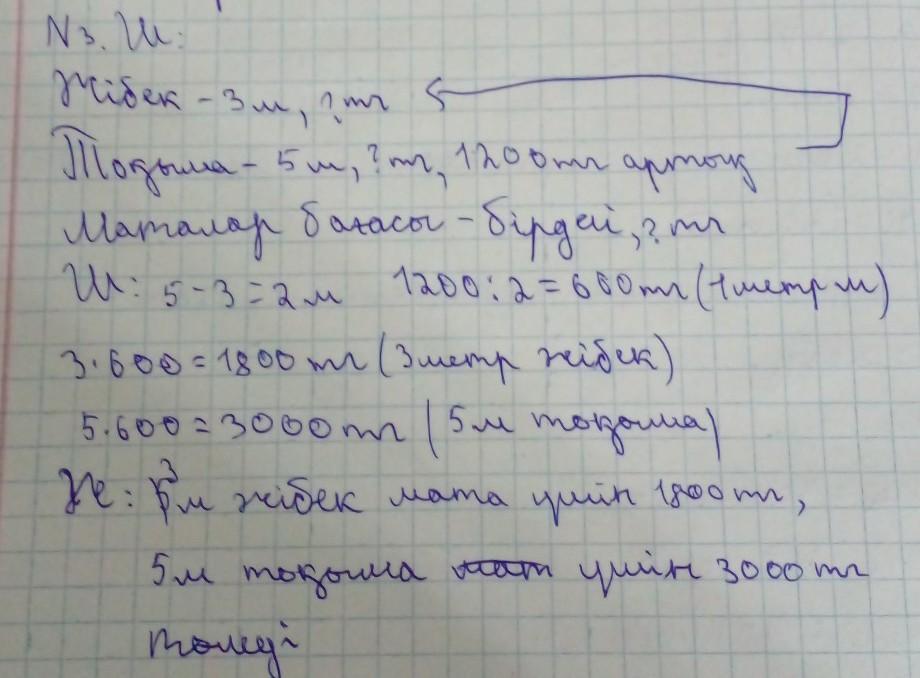 N3. Ш:
Жібек - 3 м, ? тг
Тоқыма - 5 м, ? тг, 1200 тг артық
Маталар бағасы - бірдей, ? тг
Ш: 5 - 3 = 2 м 1200 : 2 = 600 тг (1 метр м)
3 · 600 = 1800 тг (3 метр жібек)
5 · 600 = 3000 тг (5 м тоқыма)
Ж: 3 м жібек мата үшін 1800 тг,
5 м тоқыма үшін 3000 тг
төледі